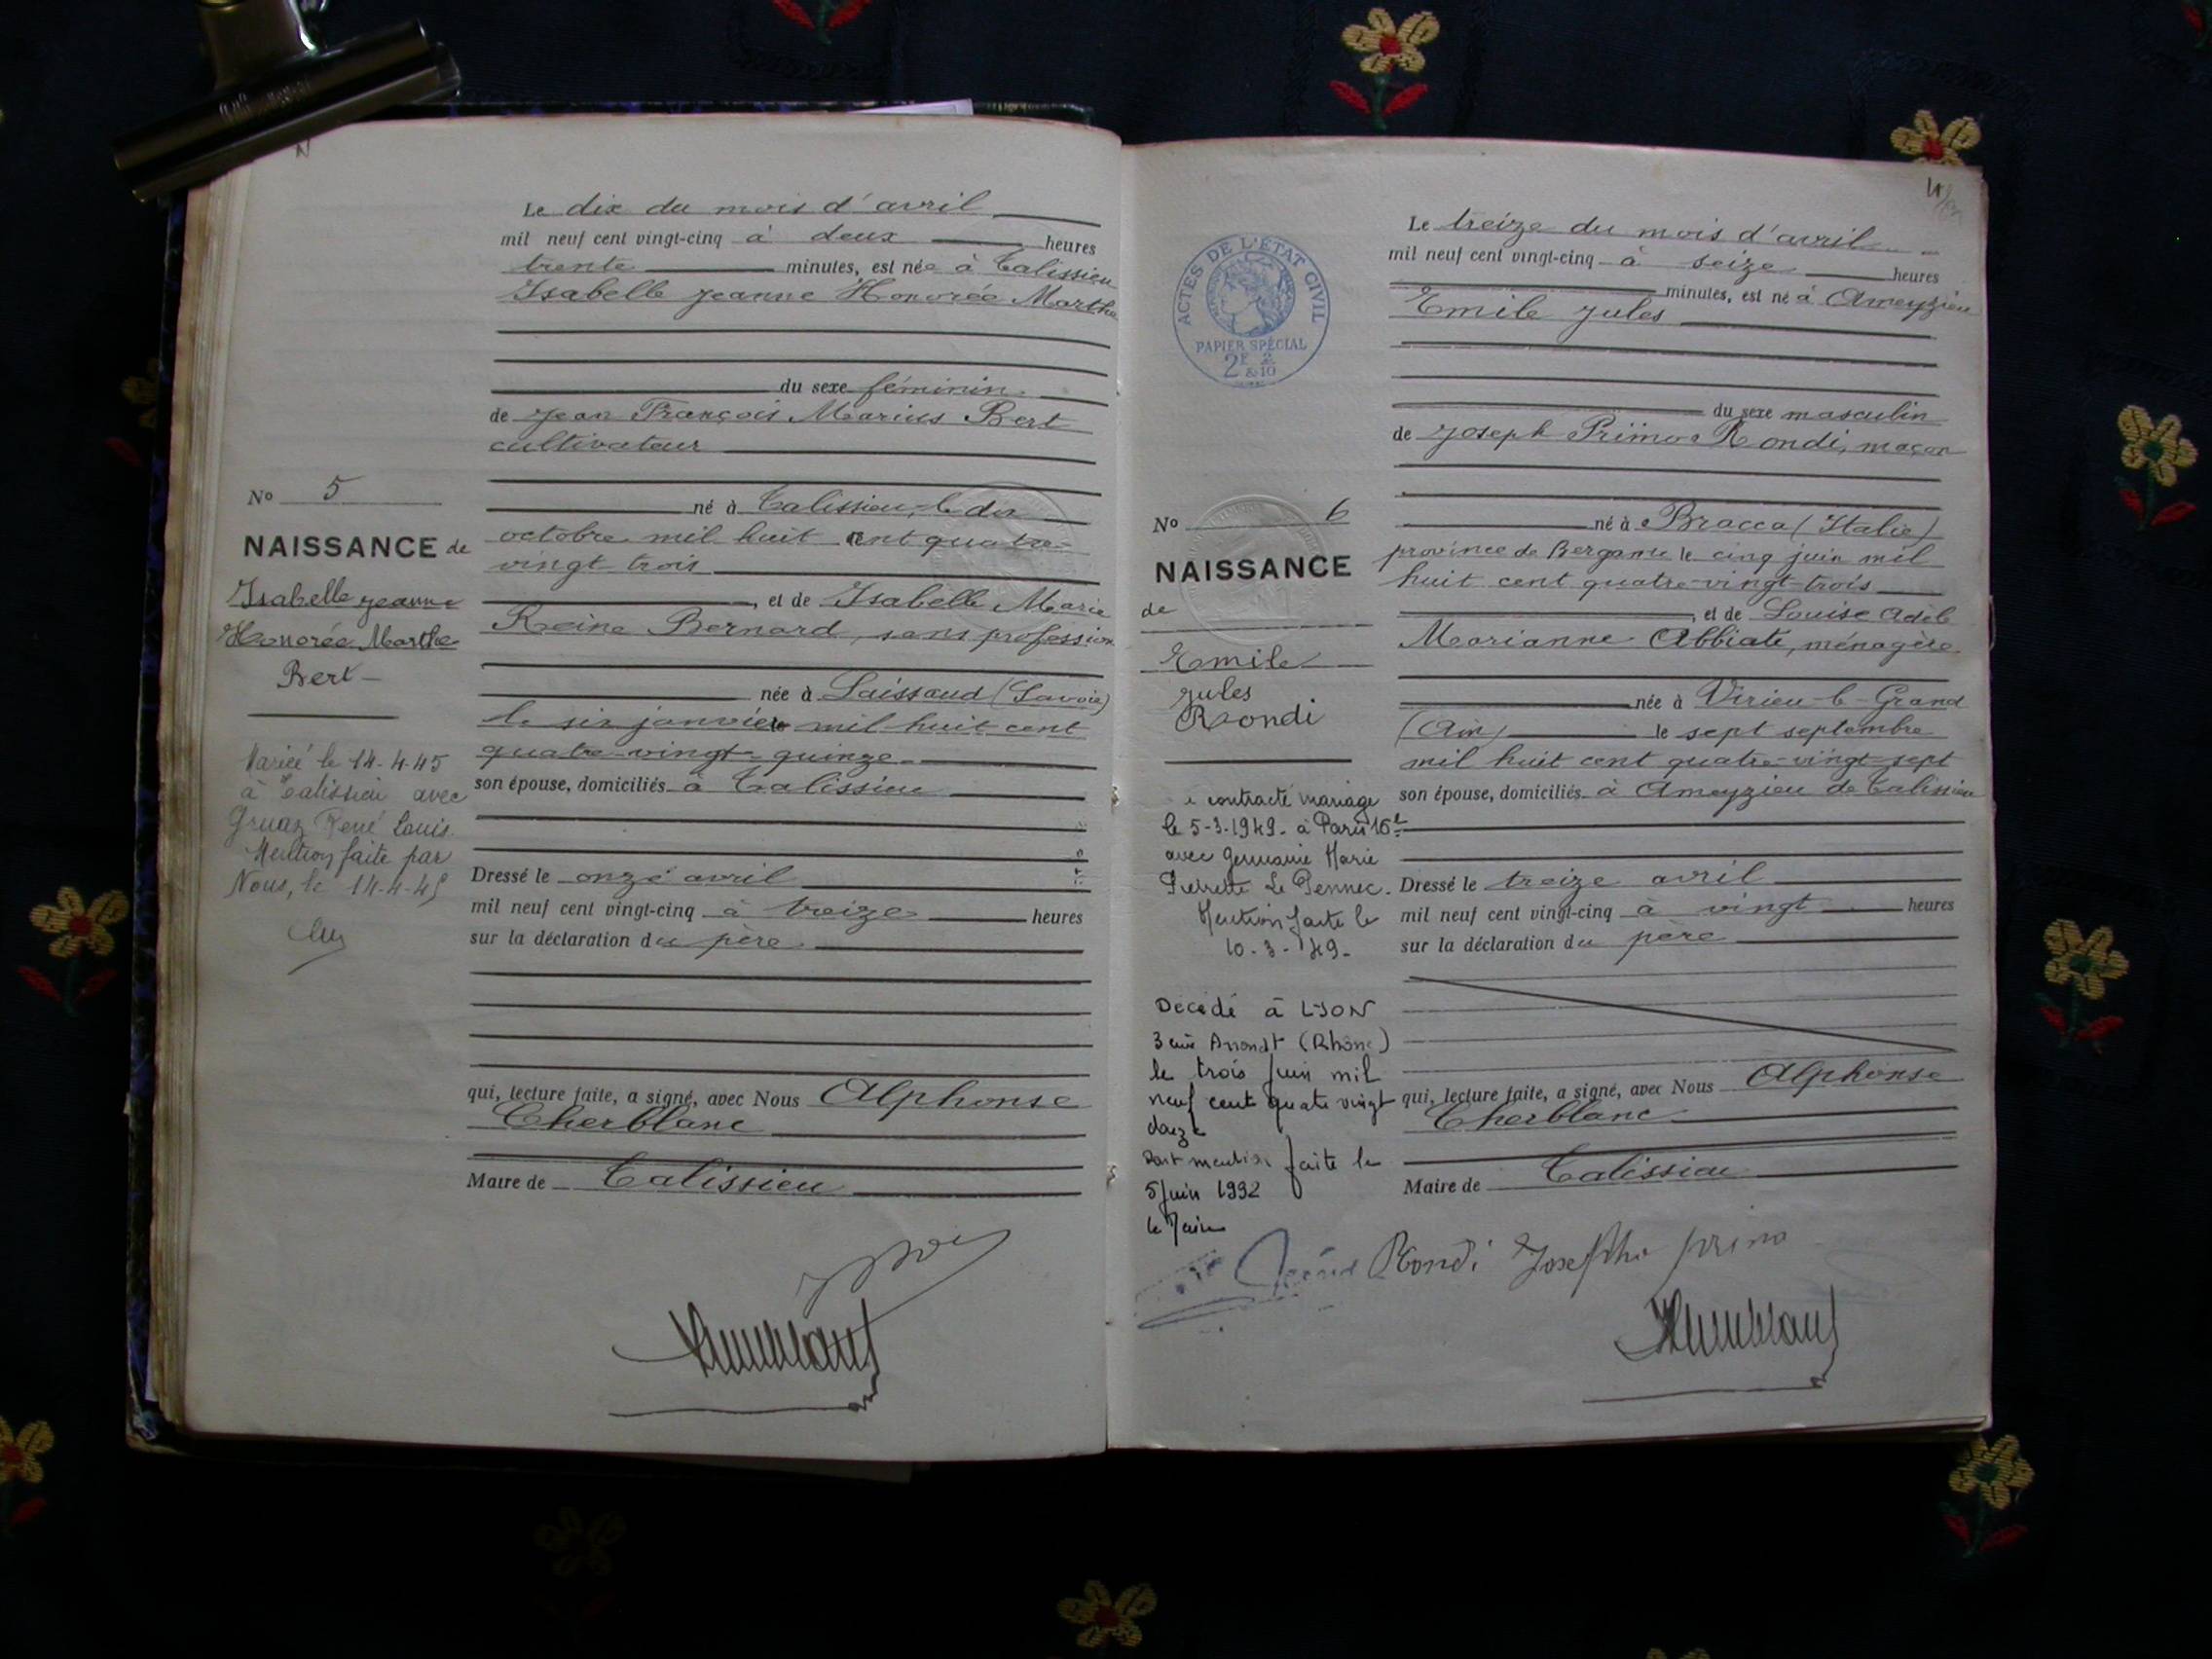 Le dix du mois d'avril
mil neuf cent vingt-cinq à deux heures
trente minutes, est née à Talissieu
Isabelle Jeanne Honorée Marthe
du sexe féminin
de Jean François Marius Bert
cultivateur
né à Talissieu, le dix
octobre mil huit cent quatre-
vingt trois
, et de Isabelle Marie
Reine Bernard, sans profession
née à Laissaud (Savoie)
le six janvier mil huit cent
quatre-vingt-quinze
son épouse, domiciliés à Talissieu
Dressé le onze avril
mil neuf cent vingt-cinq à treize heures
sur la déclaration du père
qui, lecture faite, a signé, avec Nous Alphonse
Cherblanc
Maire de Talissieu
No 5
NAISSANCE de
Isabelle Jeanne
Honorée Marthe
Bert
Mariée le 14-4-45
à Talissieu avec
Gruaz René Louis.
Mention faite par
Nous, le 14-4-45
Le treize du mois d'avril
mil neuf cent vingt-cinq à seize heures
minutes, est né à Ameyzieu
Emile Jules
du sexe masculin
de Joseph Primo Rondi, maçon
né à Bracca (Italie)
province de Bergame le cinq juin mil
huit cent quatre-vingt-trois
, et de Louise Adèle
Marianne Abbiate, ménagère
née à Virieu-le-Grand
(Ain) le sept septembre
mil huit cent quatre-vingt-sept
son épouse, domiciliés à Ameyzieu de Talissieu
Dressé le treize avril
mil neuf cent vingt-cinq à vingt heures
sur la déclaration du père
qui, lecture faite, a signé, avec Nous Alphonse
Cherblanc
Maire de Talissieu
Rondi Josepho primo
ACTES DE L'ÉTAT CIVIL
PAPIER SPÉCIAL
2F 2
&10
No 6
NAISSANCE
de
Emile
Jules
Rondi
contracté mariage
le 5-3-1949 à Paris 16e
avec Germaine Marie
Pierrette Le Pennec.
Mention faite le
10-3-49-
Décédé à LYON
3eme Arrondt (Rhône)
le trois juin mil
neuf cent quatre vingt
douze
Dont mention faite le
5 Juin 1992
le Maire